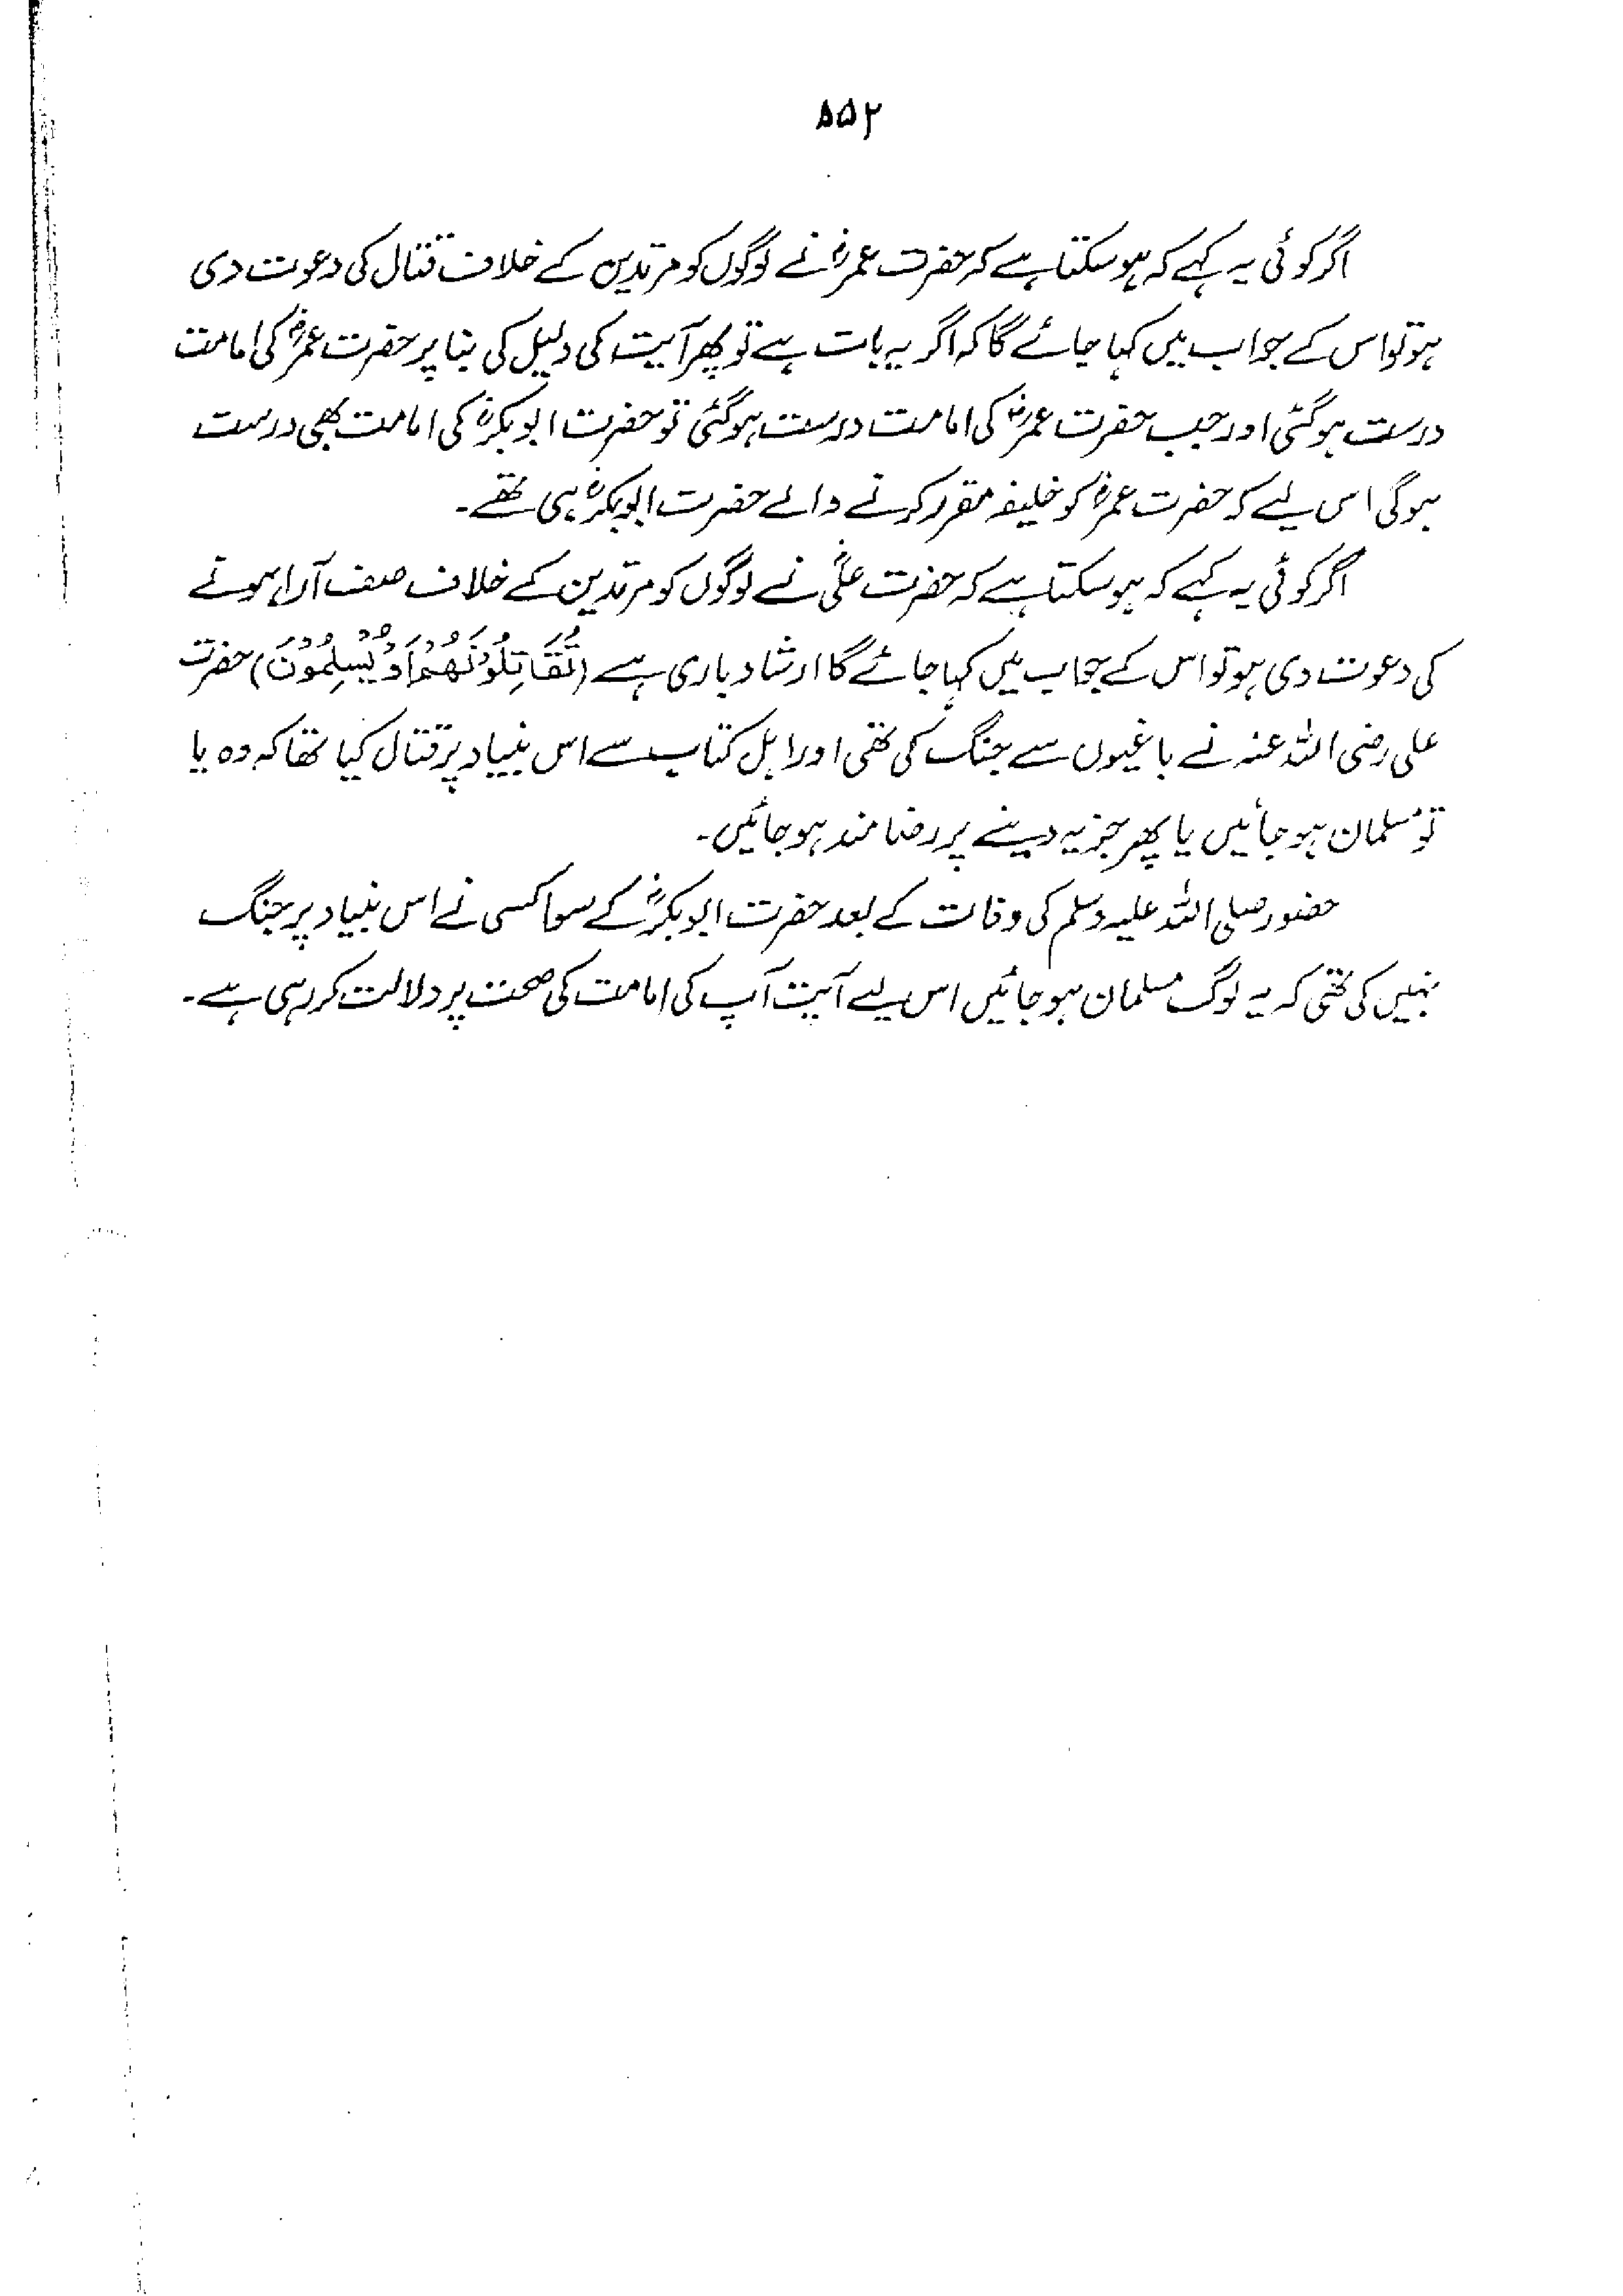 ۵۵۲
اگر کوئی یہ کہے کہ ہو سکتا ہے کہ حضرت عمرؓ نے لوگوں کو مرتدین کے خلاف قتال کی دعوت دی
ہو تو اس کے جواب میں کہا جائے گا کہ اگر یہ بات ہے تو پھر آیت کی دلیل کی بنا پر حضرت عمرؓ کی امامت
درست ہوگئی اور جب حضرت عمرؓ کی امامت درست ہوگئی تو حضرت ابوبکرؓ کی امامت بھی درست
ہوگی اس لیے کہ حضرت عمرؓ کو خلیفہ مقرر کرنے والے حضرت ابوبکرؓ ہی تھے۔
اگر کوئی یہ کہے کہ ہو سکتا ہے کہ حضرت علیؓ نے لوگوں کو مرتدین کے خلاف صف آرا ہونے
کی دعوت دی ہو تو اس کے جواب میں کہا جائے گا ارشاد باری ہے (تُقَاتِلُوْنَهُمْ اَوْ يُسْلِمُوْنَ) حضرت
علی رضی اللہ عنہ نے باغیوں سے جنگ کی تھی اور اہل کتاب سے اس بنیاد پر قتال کیا تھا کہ وہ یا
تو مسلمان ہو جائیں یا پھر جزیہ دینے پر رضامند ہو جائیں۔
حضور صلی اللہ علیہ وسلم کی وفات کے بعد حضرت ابوبکرؓ کے سوا کسی نے اس بنیاد پر جنگ
نہیں کی تھی کہ یہ لوگ مسلمان ہو جائیں اس لیے آیت آپ کی امامت کی صحت پر دلالت کر رہی ہے۔